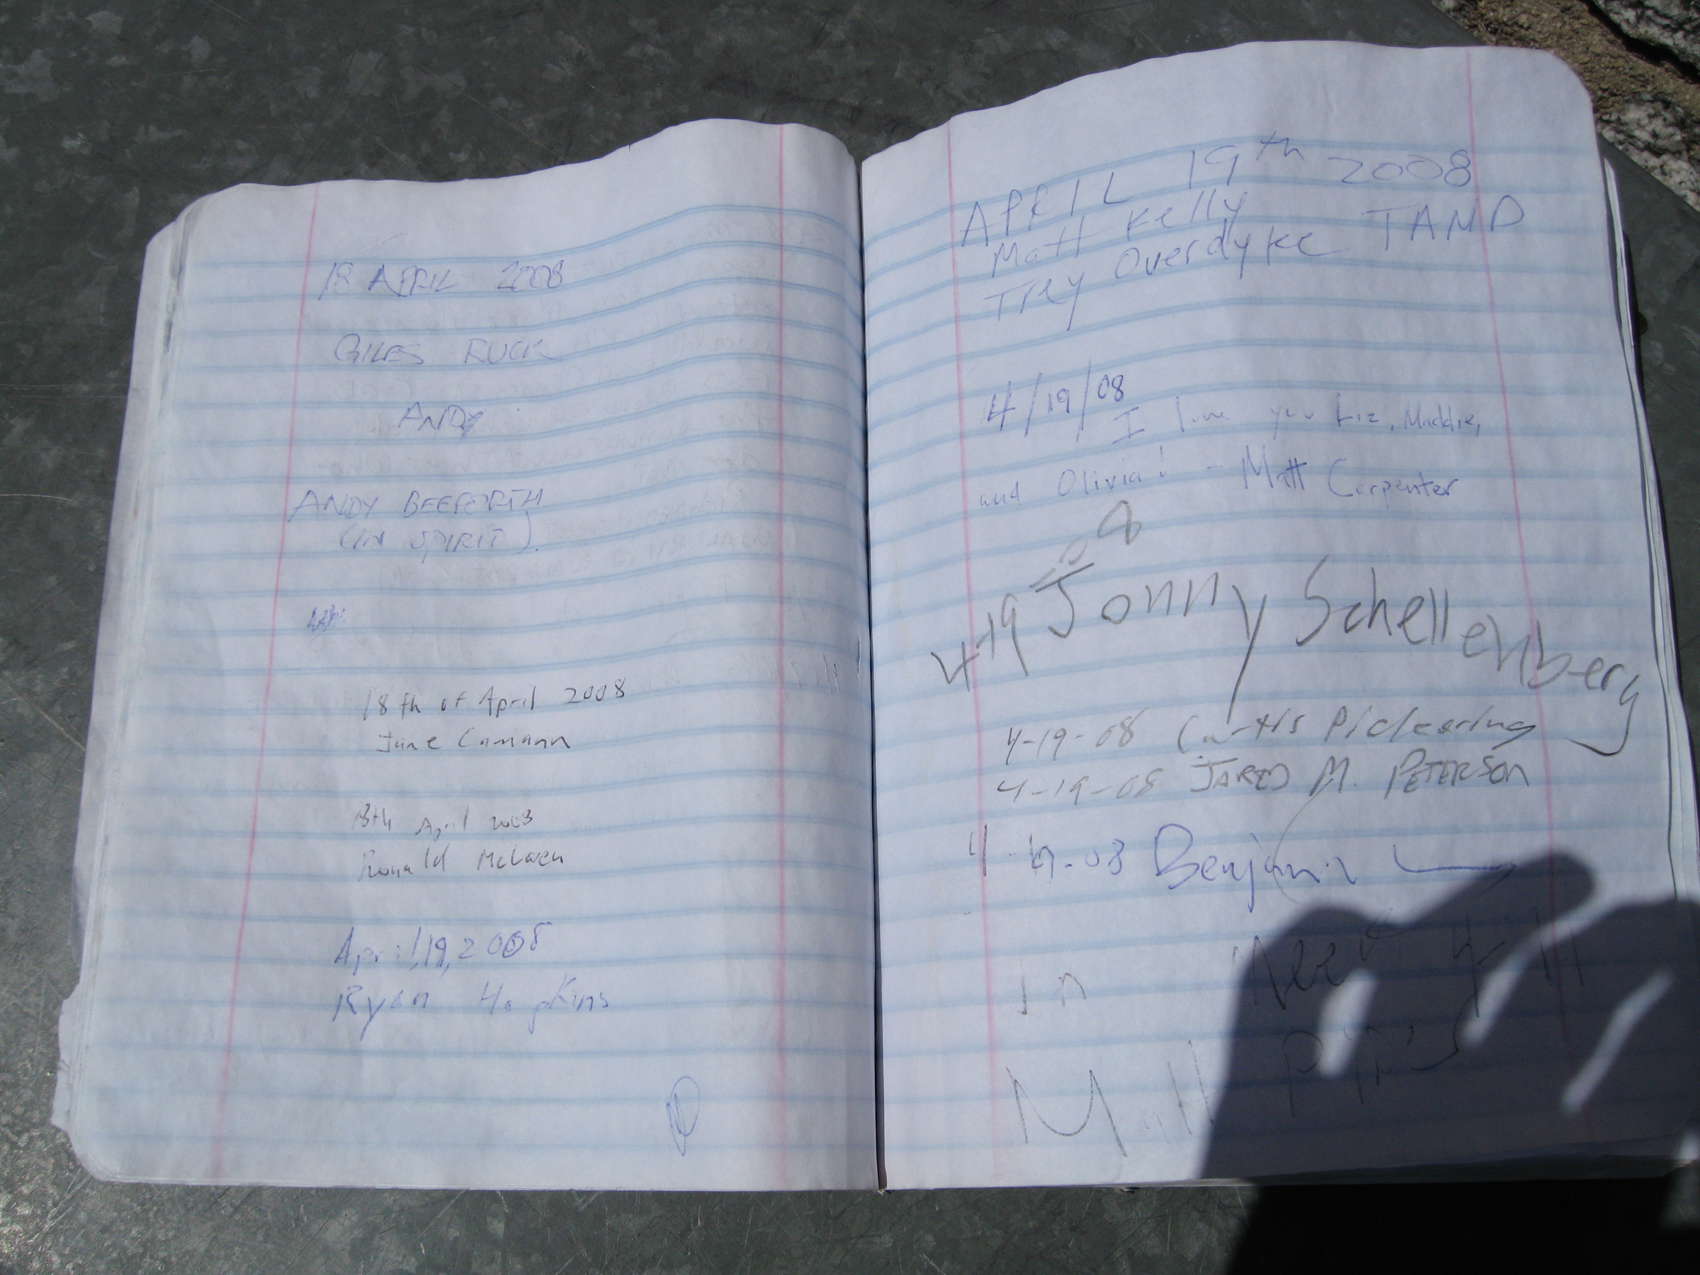 18 APRIL 2008
GILES RUCK
ANDY
ANDY BEEFORTH
(IN SPIRIT).
18th of April 2008
June Camann
18th April 2008
Ronald McEwen
April, 19, 2008
Ryan Hopkins
APRIL 19th 2008
Matt Kelly
Trey Overdyke TAND
4/19/08
I love you Liz, Maddie,
and Olivia! - Matt Carpenter
4-19-08 Jonny Schellenberg
4-19-08 Curtis Pickering
4-19-08 JARED M. PETERSON
4-19-08 Benjamin
Matt